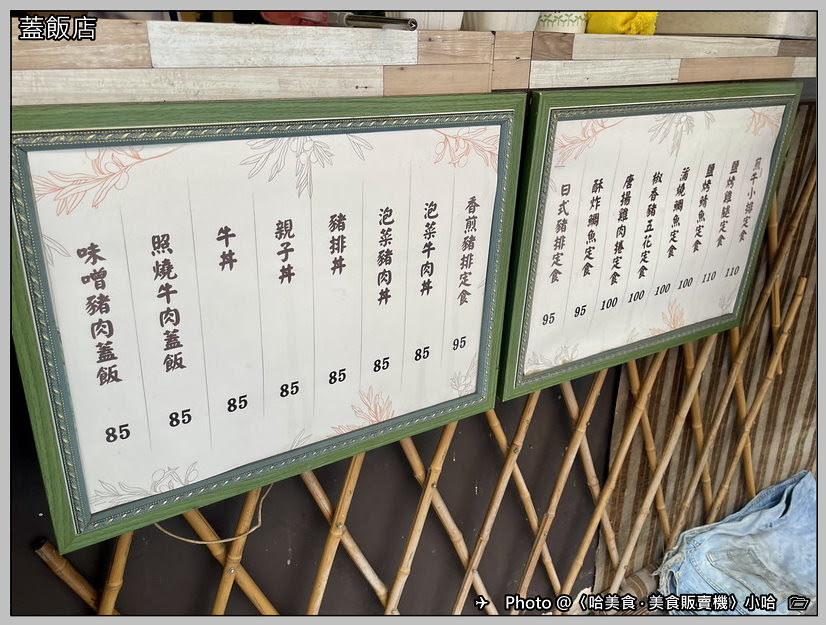 蓋飯店
味噌豬肉蓋飯 85
照燒牛肉蓋飯 85
牛丼 85
親子丼 85
豬排丼 85
泡菜豬肉丼 85
泡菜牛肉丼 85
香煎豬排定食 95
日式豬排定食 95
酥炸鯛魚定食 95
唐揚雞肉捲定食 100
椒香豬五花定食 100
蒲燒鯛魚定食 100
鹽烤鯖魚定食 100
鹽烤雞腿定食 110
煎牛小排定食 110
Photo @〈哈美食·美食販賣機〉小哈